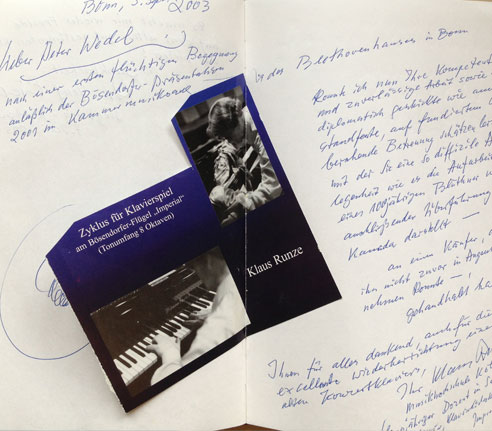 Bonn, 2003
Lieber Peter Wedel!
nach einer ersten flüchtigen Begegnung
anläßlich der Bösendorfer-Präsentation
2001 im Kammermusiksaal
des Beethovenhauses in Bonn
konnte ich nun Ihre Kompetente
und zuverlässige Arbeit sowie
diplomatisch geschickte wie
standfeste, auf fundiertem
beruhende Betreuung schätzen
mit der Sie eine so difficile
legenheit wie es die Aufarbeitung
eines 100jährigen Blüthner
anschließender Überführung
Kanada darstellt —
an einen Käufer,
ihn nicht zuvor in
nehmen konnte —,
gehandhabt
Ihnen für alles dankend, auch für die
excellente Wiederherstellung
alten Konzertklaviers,
Ihr Klaus
Musikhochschule
Zyklus für Klavierspiel
am Bösendorfer-Flügel „Imperial"
(Tonumfang 8 Oktaven)
Klaus Runze